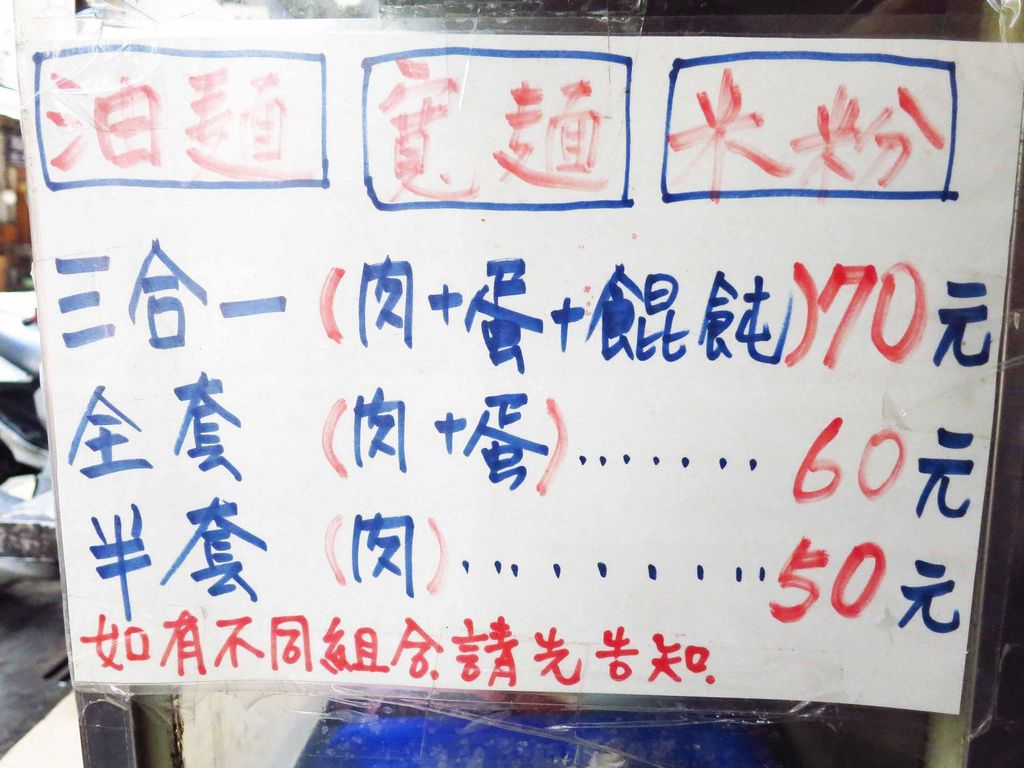 油麵 寬麵 米粉
三合一(肉+蛋+餛飩)70元
全套(肉+蛋)........60元
半套(肉)..........50元
如有不同組合.請先告知.